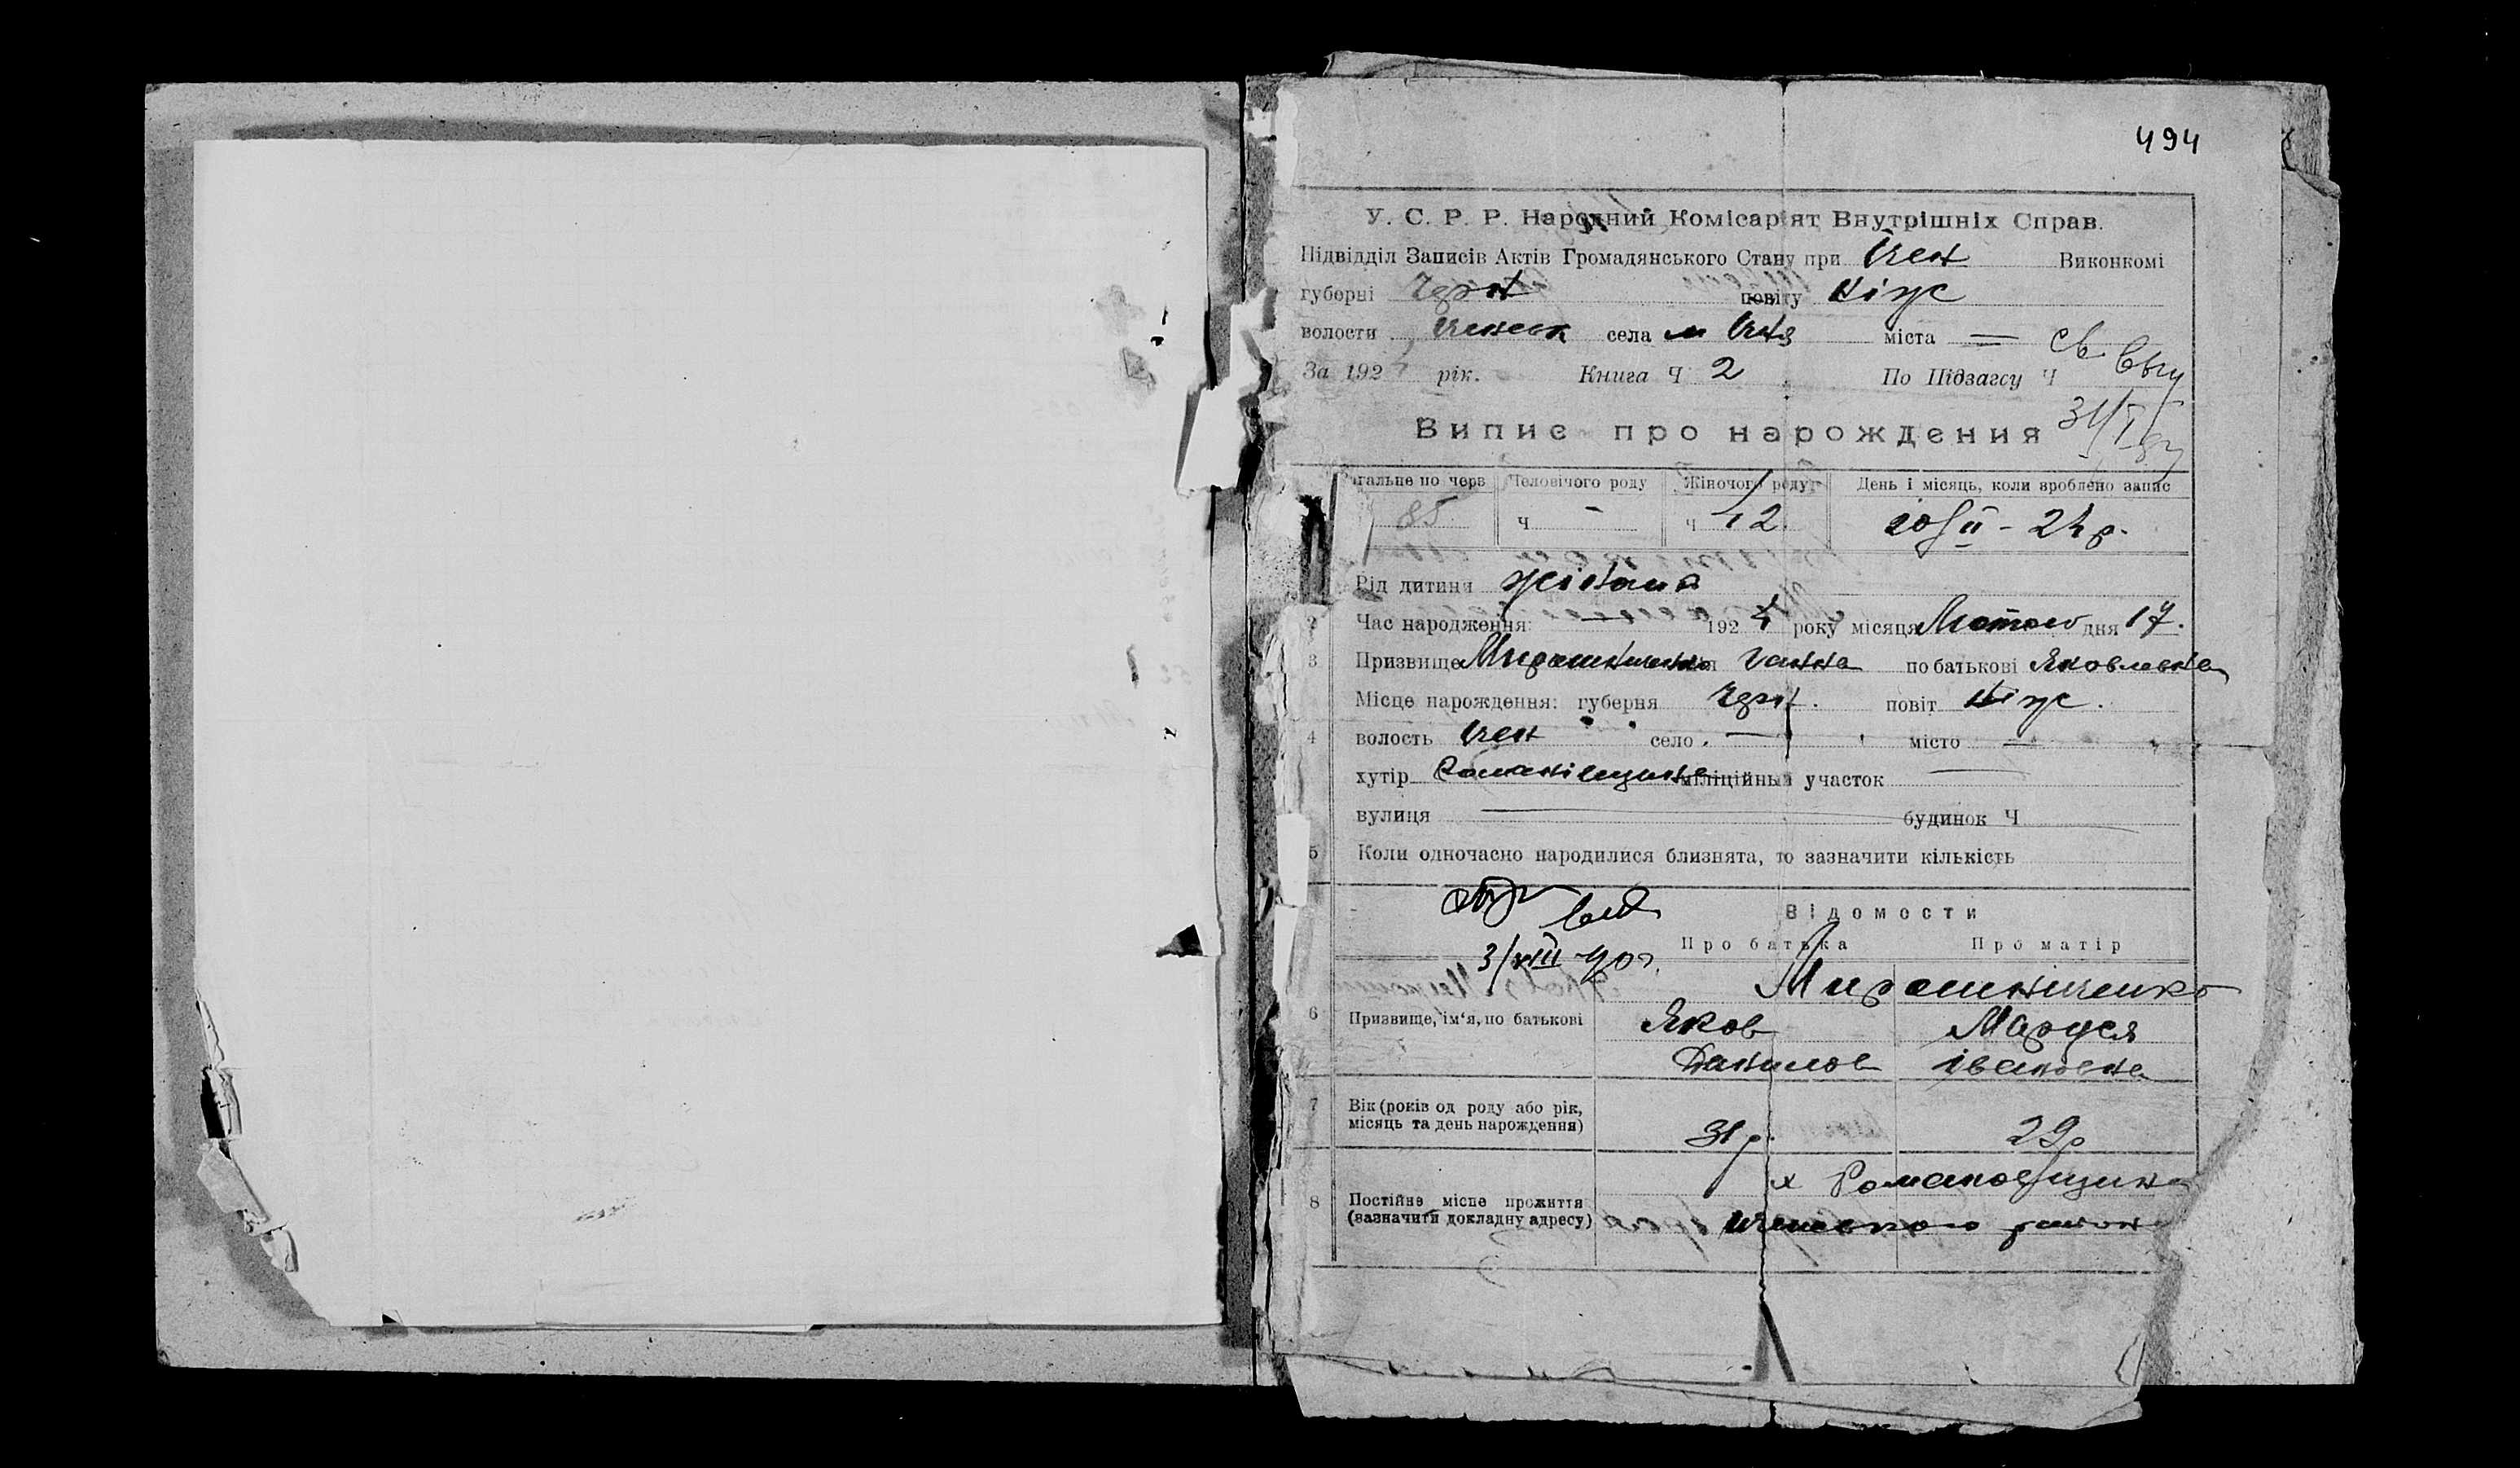 494
У. С. Р. Р. Народний Комісаріят Внутрішніх Справ.
Підвідділ Записів Актів Громадянського Стану при Ічен Виконкомі
губерні Черн повіту Ніж
волости Іченськ села м Ічня міста —
За 192 рік. Книга Ч 2 По Підзагсу Ч
св выд
31/I
Випис про нарождения
гальне по черв Человічого роду Жіночого роду День і місяць, коли зроблено запис
85 ч - ч 42. 20/II - 24 р.
Рід дитини жіноча
2 Час народження: — 1924 року місяця Лютого дня 17.
3 Призвище Мирошниченко Ганна по батькові Яковлевна
Місце нарождення: губерня Черн. повіт Ніж.
4 волость Ічен село — місто —
хутір Романівщина міліційный участок —
вулиця — будинок Ч
5 Коли одночасно народилися близнята, то зазначити кількість
3/VIII 40 г.
Відомости
Про батька Про матір
Мирошниченко
6 Призвище, ім'я, по батькові Яков Маруся
Данилов Івановна
7 Вік (років од роду або рік,
місяць та день нарождення) 31 р. 29 р
х Романовщина
8 Постійне місце прожиття
(зазначити докладну адресу) Іченського району